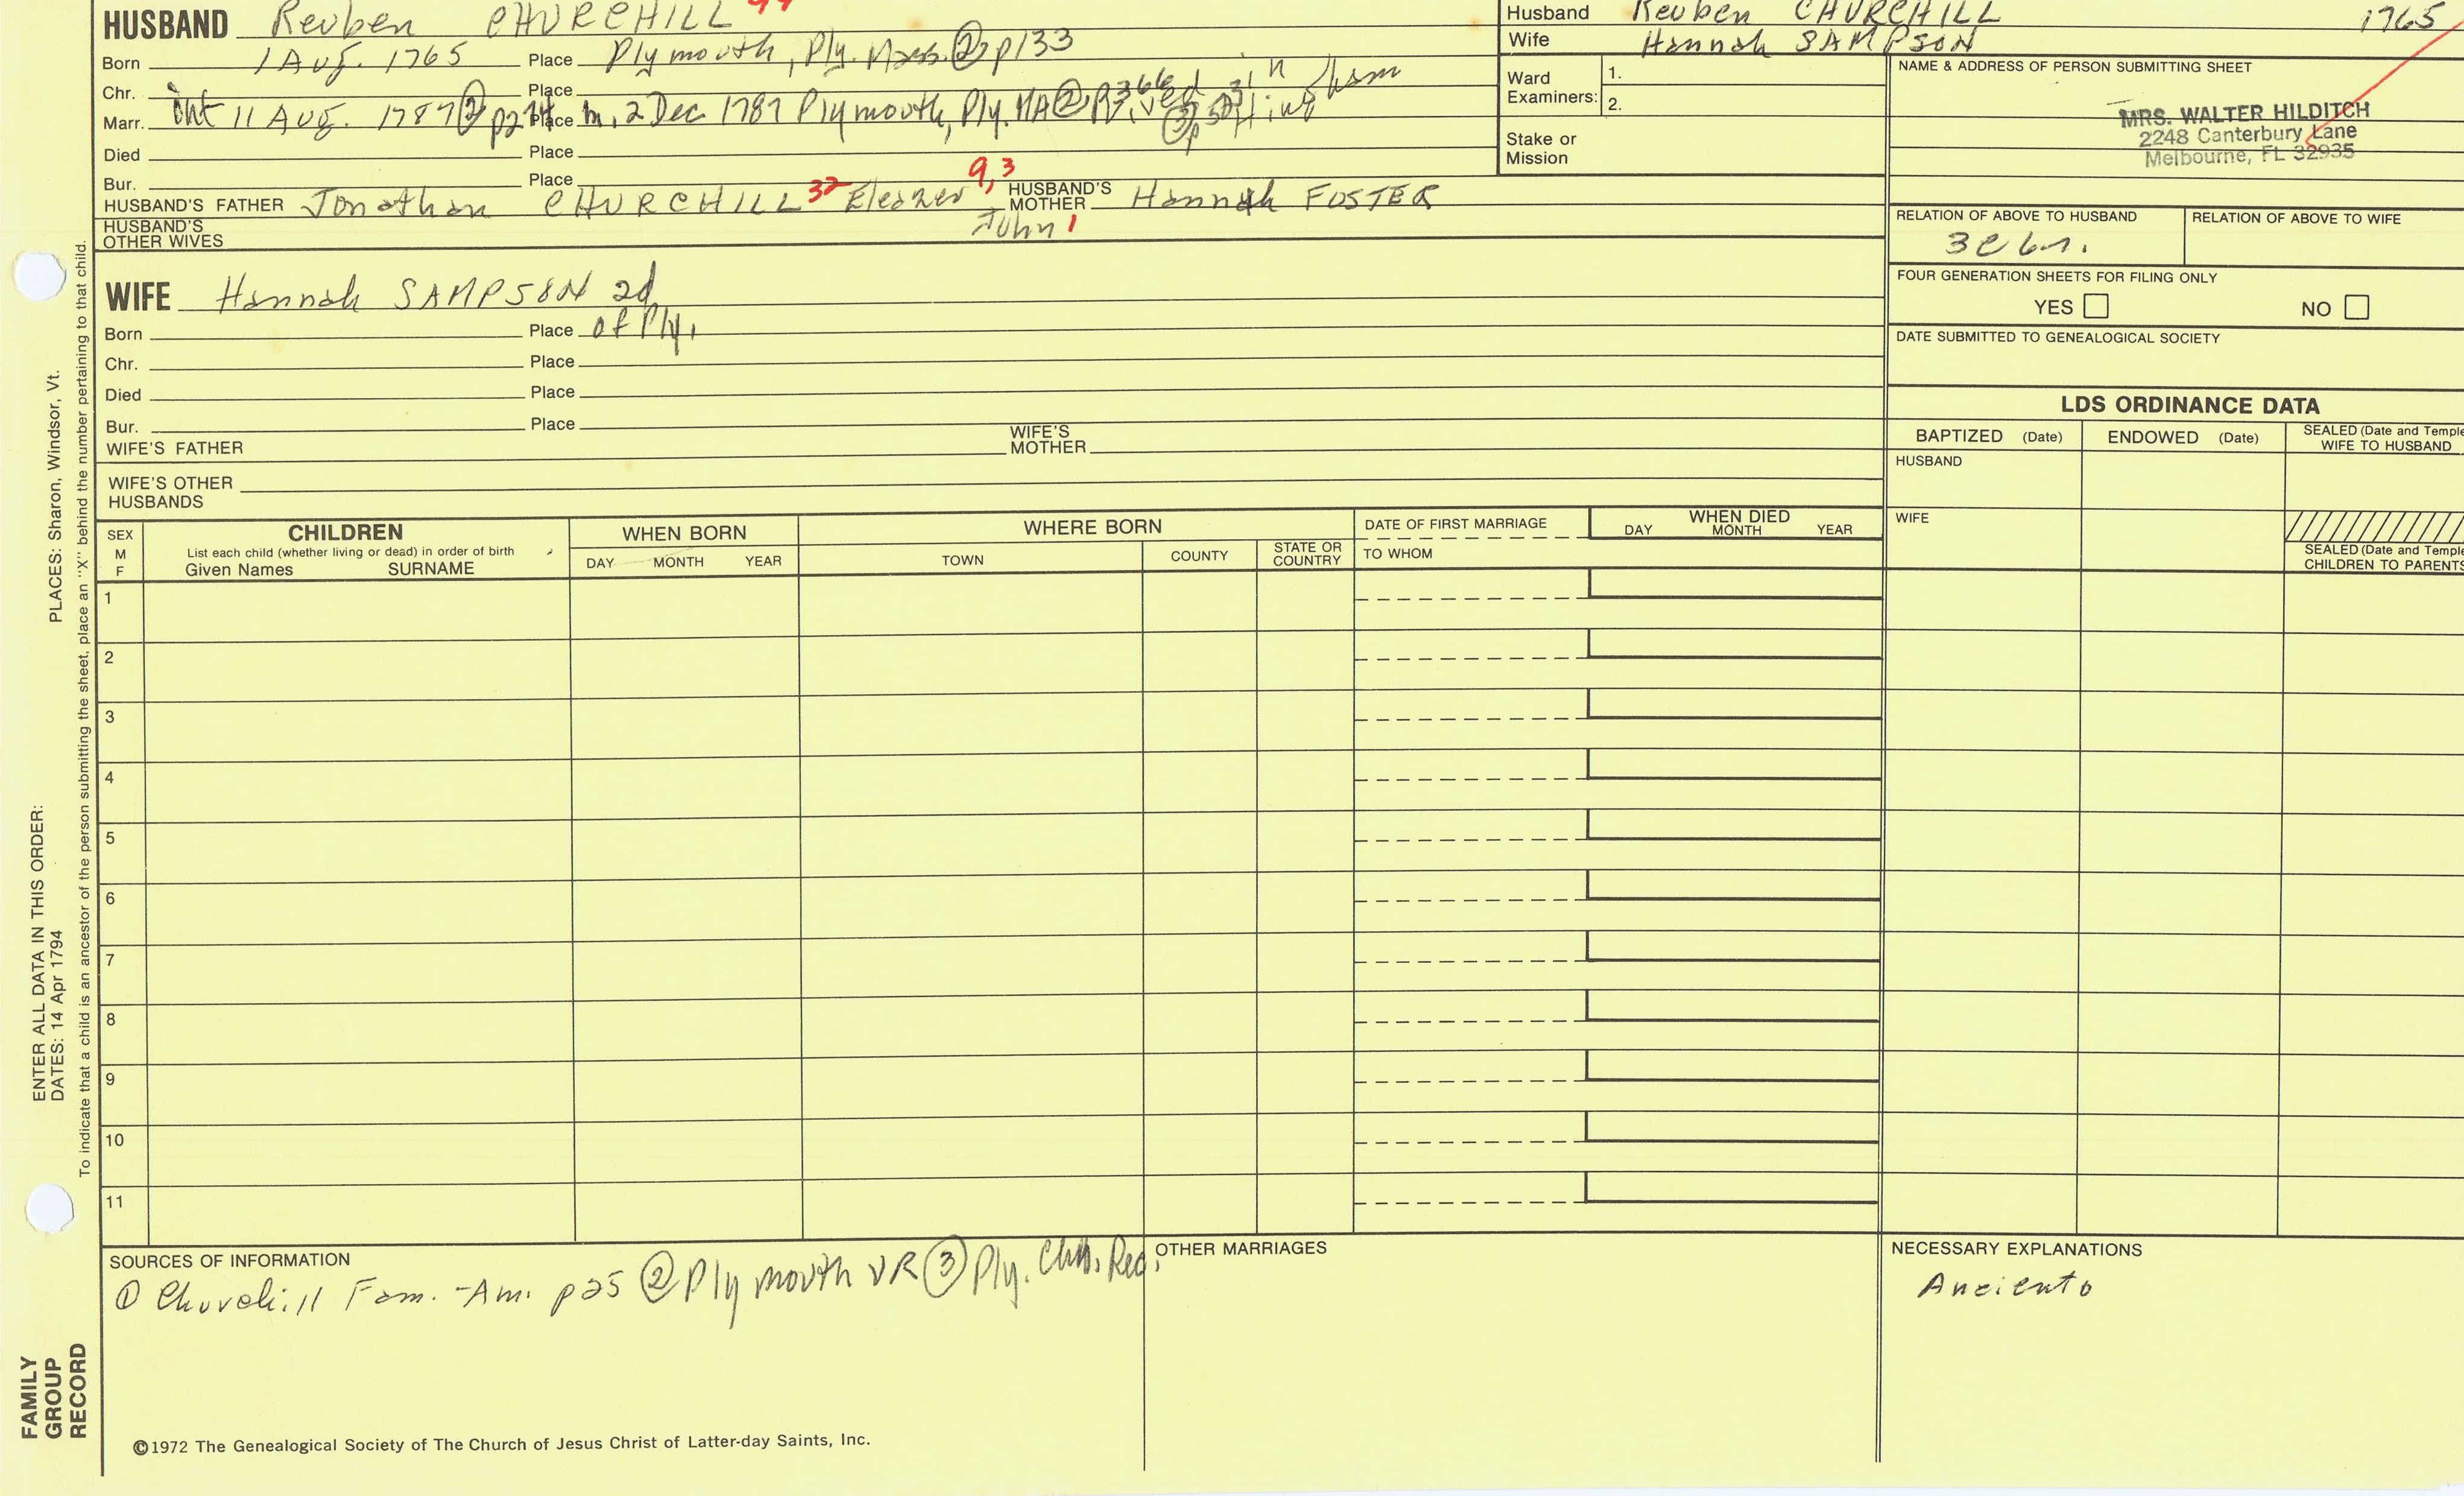 HUSBAND Reuben CHURCHILL
Born 1 Aug. 1765 Place Plymouth, Ply. Mass. ② p133
Chr. Place
Marr. int 11 Aug. 1787 ② p274 Place m. 2 Dec 1787 Plymouth, Ply. MA ② p366 ③ lived in Hingham
Died Place
Bur. Place
HUSBAND'S FATHER Jonathan CHURCHILL 32 Eleazer 9,3 John 1 HUSBAND'S MOTHER Hannah FOSTER
HUSBAND'S OTHER WIVES
Husband Reuben CHURCHILL 1765
Wife Hannah SAMPSON
Ward Examiners: 1.
2.
Stake or Mission
NAME & ADDRESS OF PERSON SUBMITTING SHEET
MRS. WALTER HILDITCH
2248 Canterbury Lane
Melbourne, FL 32935
RELATION OF ABOVE TO HUSBAND RELATION OF ABOVE TO WIFE
FOUR GENERATION SHEETS FOR FILING ONLY
YES NO
DATE SUBMITTED TO GENEALOGICAL SOCIETY
WIFE Hannah SAMPSON 2d
Born Place of Ply.
Chr. Place
Died Place
Bur. Place
WIFE'S FATHER WIFE'S MOTHER
WIFE'S OTHER HUSBANDS
LDS ORDINANCE DATA
BAPTIZED (Date) ENDOWED (Date) SEALED (Date and Temple
WIFE TO HUSBAND
HUSBAND
WIFE
SEALED (Date and Temple
CHILDREN TO PARENTS
SEX
M
F
CHILDREN
List each child (whether living or dead) in order of birth
Given Names SURNAME
WHEN BORN
DAY MONTH YEAR
WHERE BORN
TOWN COUNTY STATE OR COUNTRY
DATE OF FIRST MARRIAGE
TO WHOM
WHEN DIED
DAY MONTH YEAR
1
2
3
4
5
6
7
8
9
10
11
SOURCES OF INFORMATION
① Churchill Fam.-Am. p25 ② Plymouth VR ③ Ply. Chh. Rec.
OTHER MARRIAGES
NECESSARY EXPLANATIONS
©1972 The Genealogical Society of The Church of Jesus Christ of Latter-day Saints, Inc.
PLACES: Sharon, Windsor, Vt.
ENTER ALL DATA IN THIS ORDER:
DATES: 14 Apr 1794
To indicate that a child is an ancestor of the person submitting the sheet, place an "X" behind the number pertaining to that child.
FAMILY
GROUP
RECORD